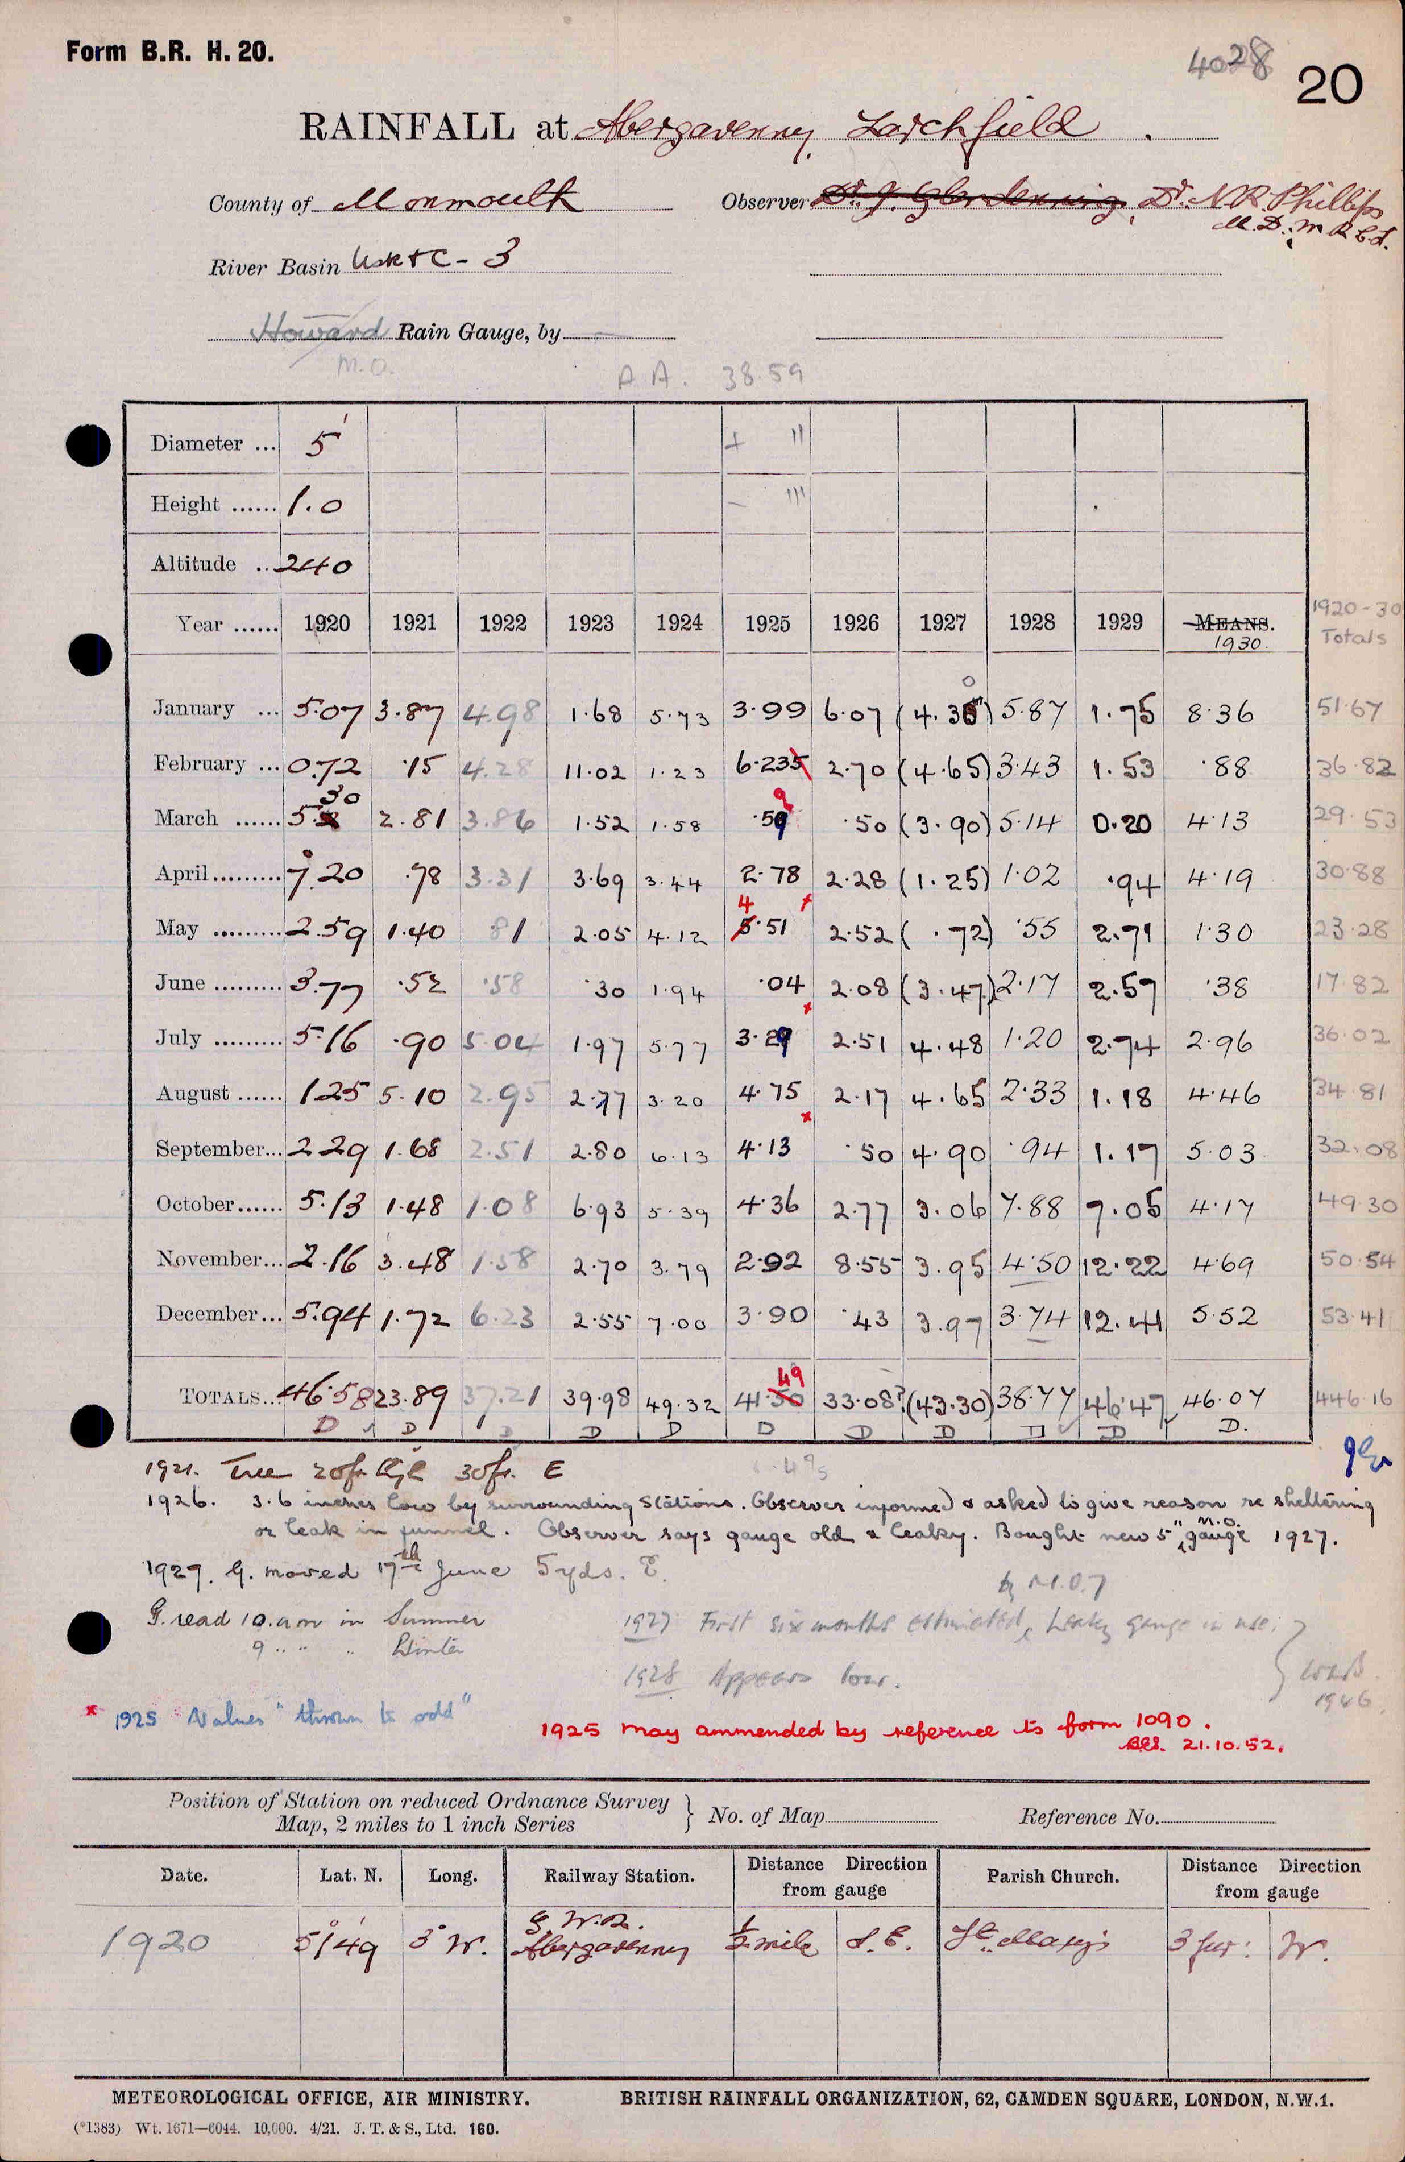 Form B.R. H. 20.
4028
20
RAINFALL at Abergavenny, Larchfield.
County of Monmouth
Observer Dr. J. Glendenning, Dr. N.R. Phillips
M.D., M.R.C.S.
River Basin Usk + C - 3
Howard Rain Gauge, by
M.O.
A A. 38.59
Diameter ... 5 + 11
Height ...... 1.0 - 111
Altitude .. 240
Year ...... 1920 1921 1922 1923 1924 1925 1926 1927 1928 1929 MEANS. 1930 1920-30 Totals
January ... 5.07 3.87 4.98 1.68 5.73 3.99 6.07 (4.30) 5.87 1.75 8.36 51.67
February ... 0.72 .15 4.28 11.02 1.23 6.235 2.70 (4.65) 3.43 1.53 .88 36.82
March ...... 5.30 2.81 3.86 1.52 1.58 .59 .50 (3.90) 5.14 0.20 4.13 29.53
April ......... 7.20 .78 3.31 3.69 3.44 2.78 2.28 (1.25) 1.02 .94 4.19 30.88
May ......... 2.59 1.40 81 2.05 4.12 4.51 2.52 (.72) .55 2.71 1.30 23.28
June ......... 3.77 .52 .58 .30 1.94 .04 2.08 (3.47) 2.17 2.57 .38 17.82
July ......... 5.16 .90 5.04 1.97 5.77 3.29 2.51 4.48 1.20 2.74 2.96 36.02
August ...... 1.25 5.10 2.95 2.77 3.20 4.75 2.17 4.65 2.33 1.18 4.46 34.81
September... 2.29 1.68 2.51 2.80 6.13 4.13 .50 4.90 .94 1.17 5.03 32.08
October...... 5.13 1.48 1.08 6.93 5.39 4.36 2.77 3.06 7.88 7.05 4.17 49.30
November... 2.16 3.48 1.58 2.70 3.79 2.92 8.55 3.95 4.50 12.22 4.69 50.54
December... 5.94 1.72 6.23 2.55 7.00 3.90 .43 3.97 3.74 12.41 5.52 53.41
TOTALS... 46.58 23.89 37.21 39.98 49.32 41.50 49 33.08? (43.30) 38.77 46.47 46.07 446.16
D D D D D D D D D D D.
1921. Tree 20ft. high 30ft. E
1926. 3.6 inches low by surrounding Stations. Observer informed & asked to give reason re sheltering
or leak in funnel. Observer says gauge old & leaky. Bought new 5" M.O. gauge 1927.
1929. G. moved 17th June 5yds. E.
by M.O.?
G. read 10.am in Summer
9 " " " Winter
1927 First six months estimated, leaky gauge in use.
1928 Appears low.
1946.
* 1925 Values "thrown to odd"
1925 May ammended by reference to form 1090.
21.10.52.
Position of Station on reduced Ordnance Survey
Map, 2 miles to 1 inch Series } No. of Map Reference No.
Date. Lat. N. Long. Railway Station. Distance Direction from gauge Parish Church. Distance Direction from gauge
1920 51° 49' 3° W. G.W.R. Abergavenny 1/2 mile S.E. St. Mary's 3 fur: W.
METEOROLOGICAL OFFICE, AIR MINISTRY. BRITISH RAINFALL ORGANIZATION, 62, CAMDEN SQUARE, LONDON, N.W.1.
(*1383) Wt. 1671—6044. 10,000. 4/21. J. T. & S., Ltd. 160.